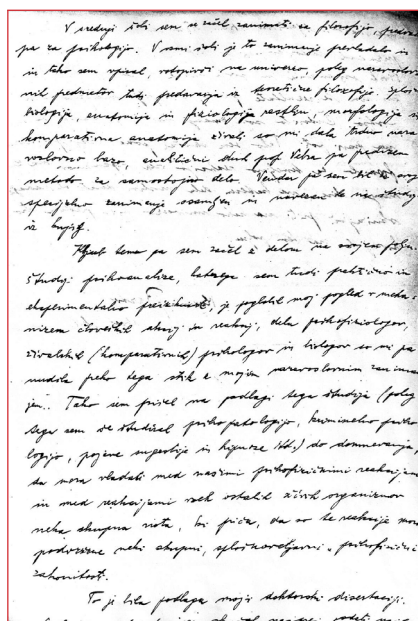 V srednji šoli sem se začel zanimati za filozofijo, predvsem
pa za psihologijo. V osmi šoli je to zanimanje prevladalo in
in tako sem vpisal, vstopivši na univerzo poleg naravoslov-
nih predmetov tudi predavanja iz teoretične filozofije. Splošna
biologija, anatomija in fiziologija rastlin, morfologija in
komparativna anatomija živali so mi dale trdno naravo-
slovno bazo, eksaktni duh prof. Vebra pa predvsem
metodo za samostojno delo. Vendar pa sem bil za svoje
specijalno zanimanje osamljen in navezan le na študij
iz knjig.
Kljub temu pa sem začel z delom na svojem polju.
Študij psihoanalize, katerega sem tudi praktično in
eksperimentalno, je poglobil moj pogled v meha-
nizem človeških akcij in reakcij, dela psihofiziologov,
živalskih (komparativnih) psihologov in biologov so mi pa
nudila preko tega stik z mojim naravoslovnim zanima-
njem. Tako sem prišel na podlagi tega študija (poleg
tega sem še študiral psihopatologijo, kriminalno psiho-
logijo, pojave sugestije in hipnoze itd.) do domnevanja,
da mora vladati med našimi psihofizičnimi reakcijami
in med reakcijami vseh ostalih živih organizmov
neka skupna nota, ki priča, da so te reakcije
podvržene neki skupni, splošnoveljavni psihofizični
zakonitosti.
To je bila podlaga moji doktorski disertaciji.